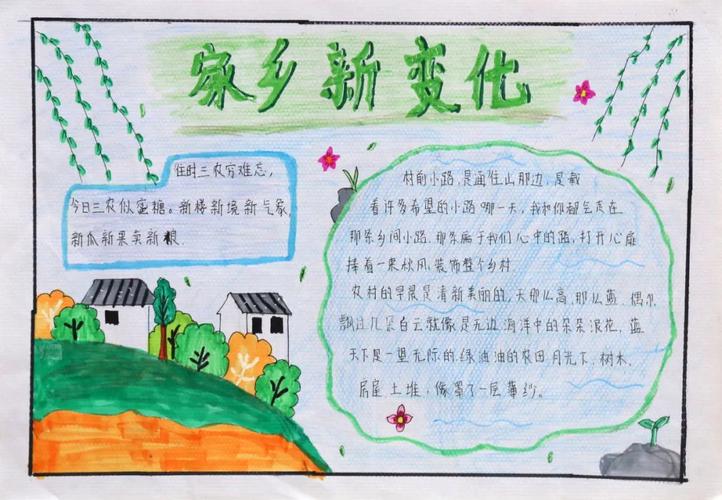 家乡新变化
往时三农穷难忘,
今日三农似蜜糖。新楼新境新气象,
新瓜新果卖新粮.
村前小路,是通往山那边,是载
着许多希望的小路哪一天,我和你都会走在
那条乡间小路.那条属于我们心中的路,打开心扉
捧着一束秋风,装饰整个乡村.
农村的早晨是清新美丽的,天那么高,那么蓝.偶尔
飘过几朵白云就像是无边海洋中的朵朵浪花,蓝
天下是一望无际的.绿油油的农田.月光下,树木.
房屋.土堆,像罩了一层薄纱。